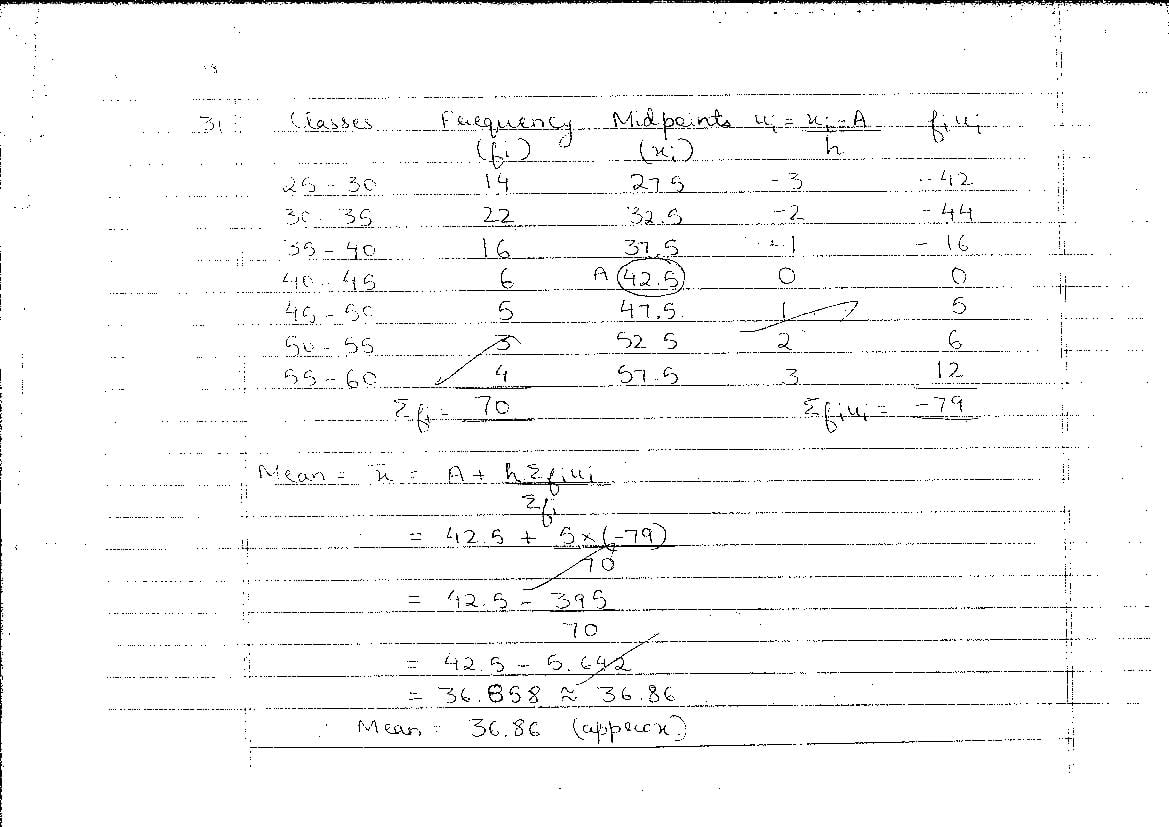 31 Classes Frequency Midpoints ui = xi - A fiui
(fi) (xi) h
25 - 30 14 27.5 -3 -42
30 - 35 22 32.5 -2 -44
35 - 40 16 37.5 -1 -16
40 - 45 6 A 42.5 0 0
45 - 50 5 47.5 1 5
50 - 55 3 52.5 2 6
55 - 60 4 57.5 3 12
Σfi = 70 Σfiui = -79
Mean = x̄ = A + hΣfiui
Σfi
= 42.5 + 5×(-79)
70
= 42.5 - 395
70
= 42.5 - 5.642
= 36.858 ≈ 36.86
Mean = 36.86 (approx)